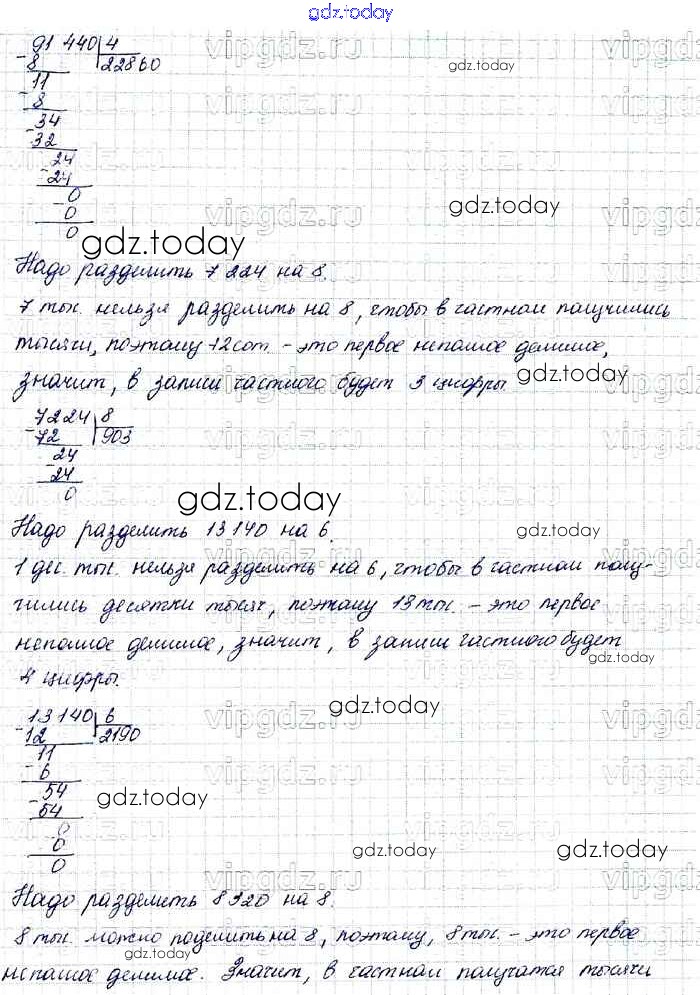 gdz.today
91 440 4
- 8 22860
11
- 8
34
- 32
24
- 24
0
- 0
0
gdz.today
gdz.today
gdz.today
Надо разделить 7 224 на 8.
7 тыс. нельзя разделить на 8, чтобы в частном получились
тысячи, поэтому 72 сот. - это первое неполное делимое,
значит, в записи частного будет 3 цифры.
gdz.today
7224 8
- 72 903
24
- 24
0
gdz.today
Надо разделить 13 140 на 6.
gdz.today
1 дес. тыс. нельзя разделить на 6, чтобы в частном полу-
чились десятки тысяч, поэтому 13 тыс. - это первое
неполное делимое, значит, в записи частного будет
4 цифры.
gdz.today
gdz.today
13 140 6
- 12 2190
11
- 6
54
- 54
0
- 0
0
gdz.today
gdz.today
gdz.today
Надо разделить 8 320 на 8.
8 тыс. можно поделить на 8, поэтому, 8 тыс. - это первое
неполное делимое. Значит, в частном получатся тысячи
vipgdz.ru